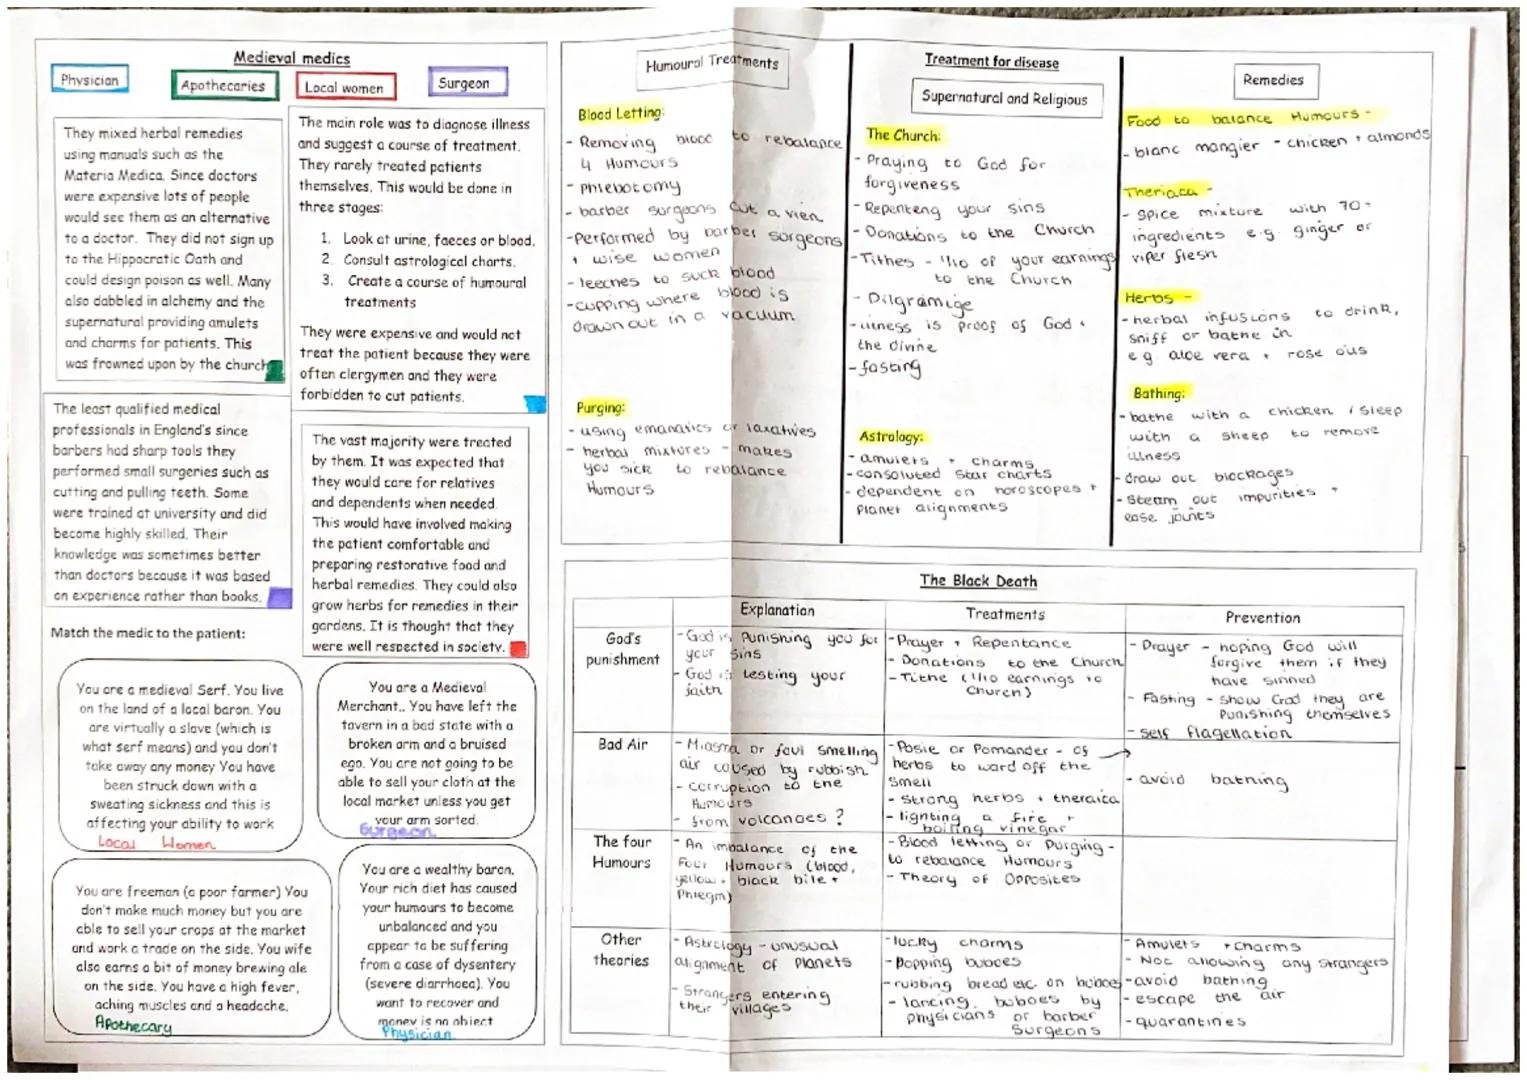 Medieval medics
Physician
Apothecaries
Local women
Surgeon
They mixed herbal remedies
using manuals such as the
Materia Medica. Since doctors
were expensive lots of people
would see them as an alternative
to a doctor. They did not sign up
to the Hippocratic Oath and
could design poison as well. Many
also dabbled in alchemy and the
supernatural providing amulets
and charms for patients. This
was frowned upon by the church
The main role was to diagnose illness
and suggest a course of treatment.
They rarely treated patients
themselves. This would be done in
three stages:
1. Look at urine, faeces or blood.
2. Consult astrological charts.
3. Create a course of humoural
treatments
They were expensive and would not
treat the patient because they were
often clergymen and they were
forbidden to cut patients.
The least qualified medical
professionals in England's since
barbers had sharp tools they
performed small surgeries such as
cutting and pulling teeth. Some
were trained at university and did
become highly skilled. Their
knowledge was sometimes better
than doctors because it was based
on experience rather than books.
The vast majority were treated
by them. It was expected that
they would care for relatives
and dependents when needed.
This would have involved making
the patient comfortable and
preparing restorative food and
herbal remedies. They could also
grow herbs for remedies in their
gardens. It is thought that they
were well respected in society.
Match the medic to the patient:
You are a medieval Serf. You live
on the land of a local baron. You
are virtually a slave (which is
what serf means) and you don't
take away any money You have
been struck down with a
sweating sickness and this is
affecting your ability to work
Local Women
You are a Medieval
Merchant.. You have left the
tavern in a bad state with a
broken arm and a bruised
ego. You are not going to be
able to sell your cloth at the
local market unless you get
your arm sorted.
Surgeon
You are freeman (a poor farmer) You
don't make much money but you are
able to sell your crops at the market
and work a trade on the side. You wife
also earns a bit of money brewing ale
on the side. You have a high fever,
aching muscles and a headache.
Apothecary
You are a wealthy baron.
Your rich diet has caused
your humours to become
unbalanced and you
appear to be suffering
from a case of dysentery
(severe diarrhoea). You
want to recover and
money is no object
Physician
Treatment for disease
Humoural Treatments
Blood Letting:
- Removing blood to rebalance
4 Humours
- Phlebotomy
- barber surgeons cut a vien
- Performed by barber surgeons
+ wise women
- leeches to suck blood
- cupping where blood is
drawn out in a vacuum
Purging:
- using emanatics or laxatives
- herbal mixtures - makes
you sick to rebalance
Humours
Supernatural and Religious
The Church:
- Praying to God for
forgiveness
- Repenteng your sins
- Donations to the Church
- Tithes - 1/10 of your earnings
to the Church
- Pilgramige
- illness is proof of God +
the divine
- fasting
Astrology:
- amulets + charms
- consoluted star charts
- dependent on horoscopes +
planet alignments
Remedies
Food to balance Humours -
- blanc mangier - chicken + almonds
Theriaca -
- spice mixture with 70+
ingredients e.g. ginger or
viper flesh
Herbs -
- herbal infusions to drink,
sniff or bathe in
e g aloe vera + rose oils
Bathing:
- bathe with a chicken / sleep
with a sheep to remove
illness
- draw out blockages
- steam out impurities +
ease joints
The Black Death
Explanation
Treatments
Prevention
God's
punishment
- God is Punishing you for
your sins
- God is testing your
faith
- Prayer + Repentance
- Donations to the Church
- Tithe (1/10 earnings to
Church)
- Prayer - hoping God will
forgive them if they
have sinned
- Fasting - show God they are
Punishing themselves
- self flagellation
Bad Air
- Miasma or foul smelling
air caused by rubbish
- corruption to the
Humours
- from volcanoes ?
- Posie or Pomander - of
herbs to ward off the
smell
- strong herbs + theraica
- lighting a fire +
boiling vinegar
- avoid bathing
The four
Humours
- An imbalance of the
Four Humours (blood,
yellow + black bile +
Phlegm)
- Blood letting or Purging -
to rebalance Humours
- Theory of Opposites
Other
theories
- Astrology - unusual
alignment of Planets
- Strangers entering
their villages
- lucky charms
- Popping buboes
- rubbing bread etc. on buboes
- lancing buboes by
physicians or barber
surgeons
- Amulets + charms
- Not allowing any strangers
- avoid bathing
- escape the air
- quarantines